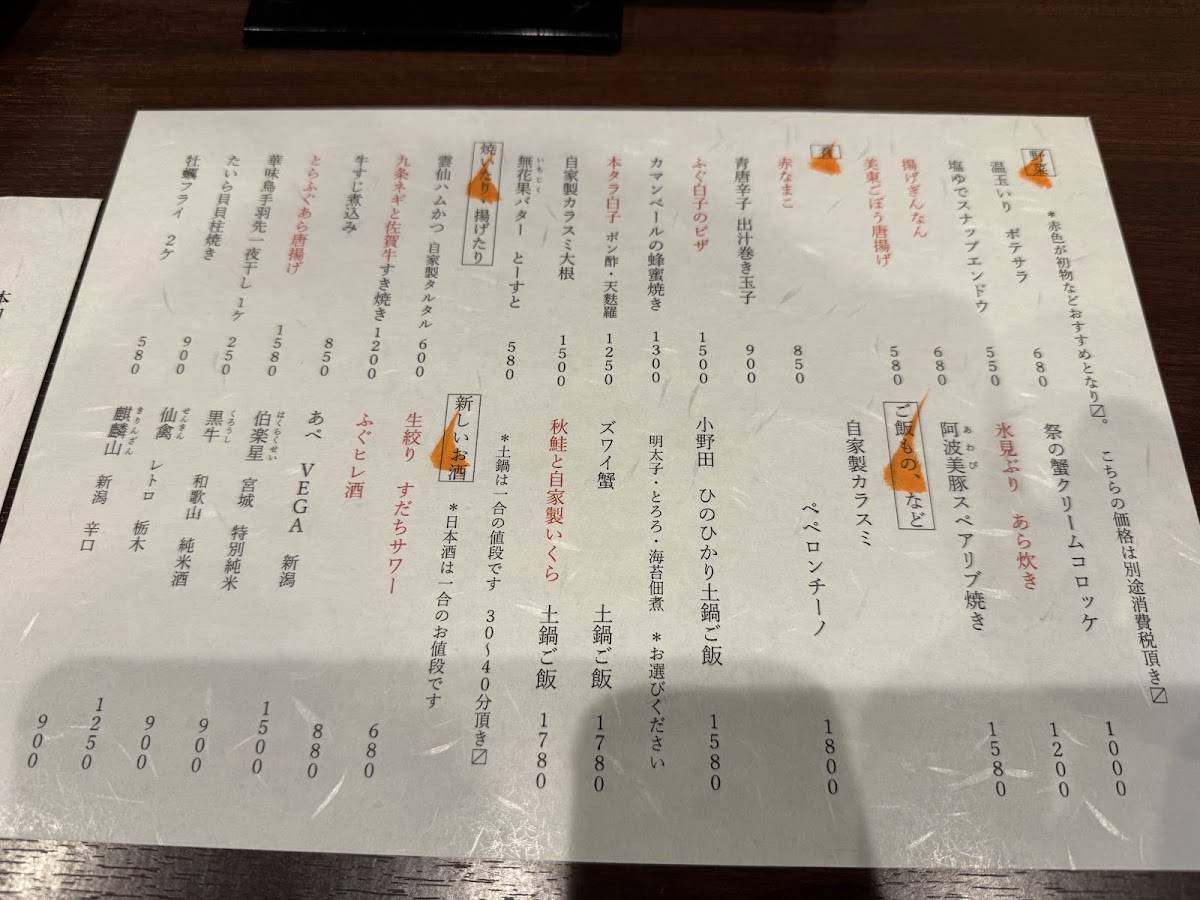 野菜
＊赤色が初物などおすすめとなり〼。 こちらの価格は別途消費税頂き〼
温玉いり ポテサラ 680
塩ゆでスナップエンドウ 550
揚げぎんなん 680
美東ごぼう唐揚げ 580
肴
赤なまこ 850
青唐辛子 出汁巻き玉子 900
ふぐ白子のピザ 1500
カマンベールの蜂蜜焼き 1300
本タラ白子 ポン酢・天麩羅 1250
自家製カラスミ大根 1500
いちじく
無花果バター とーすと 580
焼いたり、揚げたり
雲仙ハムかつ 自家製タルタル 600
九条ネギと佐賀牛すき焼き 1200
牛すじ煮込み 850
とらふぐあら唐揚げ 1580
華味鳥手羽先一夜干し 1ケ 250
たいら貝貝柱焼き 900
牡蠣フライ 2ケ 580
祭の蟹クリームコロッケ 1000
氷見ぶり あら炊き 1200
あわび
阿波美豚スペアリブ焼き 1580
ご飯もの、など
自家製カラスミ
ペペロンチーノ 1800
小野田 ひのひかり土鍋ご飯 1580
明太子・とろろ・海苔佃煮 ＊お選びください
ズワイ蟹 土鍋ご飯 1780
秋鮭と自家製いくら 土鍋ご飯 1780
＊土鍋は一合の値段です 30〜40分頂き〼
新しいお酒
＊日本酒は一合のお値段です
生絞り すだちサワー 680
ふぐヒレ酒 880
あべ VEGA 新潟 1500
はくらくせい
伯楽星 宮城 特別純米 900
くろうし
黒牛 和歌山 純米酒 900
せんきん
仙禽 レトロ 栃木 1250
きりんざん
麒麟山 新潟 辛口 900